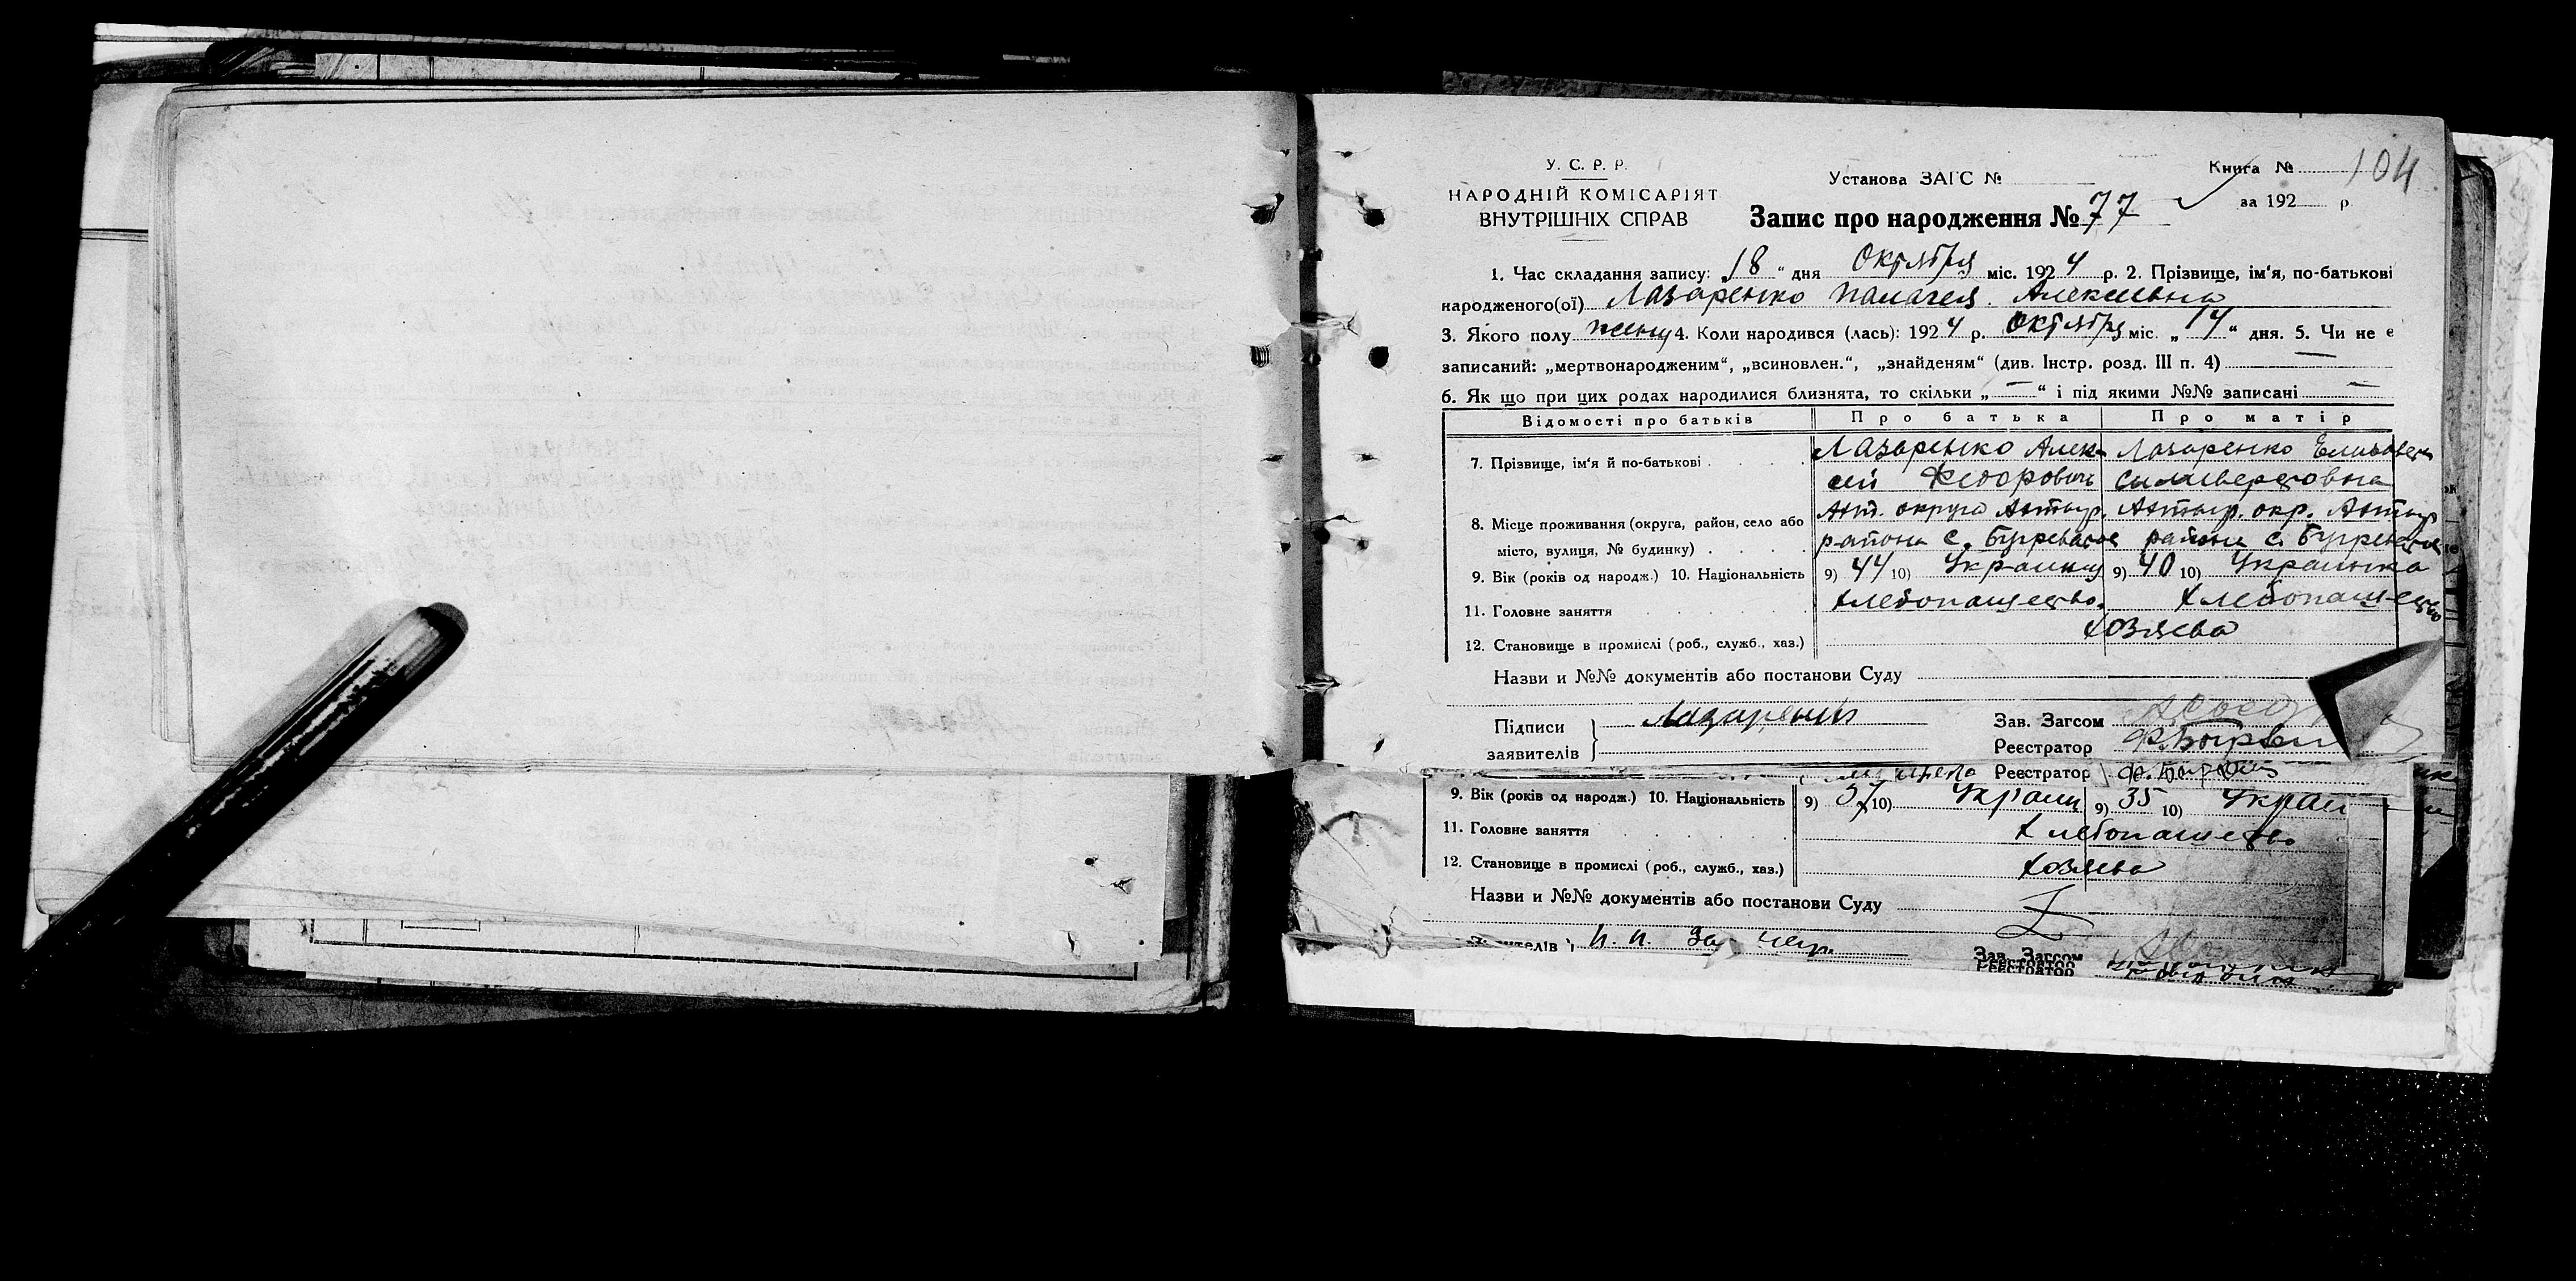 У. С. Р. Р.
НАРОДНІЙ КОМІСАРІЯТ
ВНУТРІШНІХ СПРАВ
Установа ЗАГС №
Книга № 104
за 192 р
Запис про народження № 77
1. Час складання запису: „18“ дня Октября міс. 1924 р. 2. Прізвище, ім‘я, по-батькові
народженого(ої) Лазаренко Палагея Алексеевна
3. Якого полу женщ 4. Коли народився (лась): 1924 р. октября міс. „14“ дня. 5. Чи не є
записаний: „мертвонародженим“, „всиновлен.“, „знайденям“ (див. Інстр. розд. III п. 4) —
6. Як що при цих родах народилися близнята, то скільки „—“ і під якими №№ записані —
Відомості про батьків Про батька Про матір
7. Прізвище, ім‘я й по-батькові Лазаренко Алек- Лазаренко Елизавета
сей Федорович Силиверстовна
8. Місце проживання (округа, район, село або Ахт. округа Ахтыр. Ахтыр. окр. Ахтыр
місто, вулиця, № будинку) района с. Бугреватое района с. Бугреватое
9. Вік (років од народж.) 10. Національність 9) 44 10) Украинц 9) 40 10) Украинка
11. Головне заняття хлебопашество. хлебопашество
12. Становище в промислі (роб., служб., хаз.) хозяева
Назви и №№ документів або постанови Суду
Підписи Лазаренко Зав. Загсом
заявителів Реєстратор
Реєстратор
9. Вік (років од народж.) 10. Національність 9) 37 10) Украин 9) 35 10) Украи
11. Головне заняття хлебопашество
12. Становище в промислі (роб., служб., хаз.) хозяева
Назви и №№ документів або постанови Суду
Зав. Загсом
Реєстратор